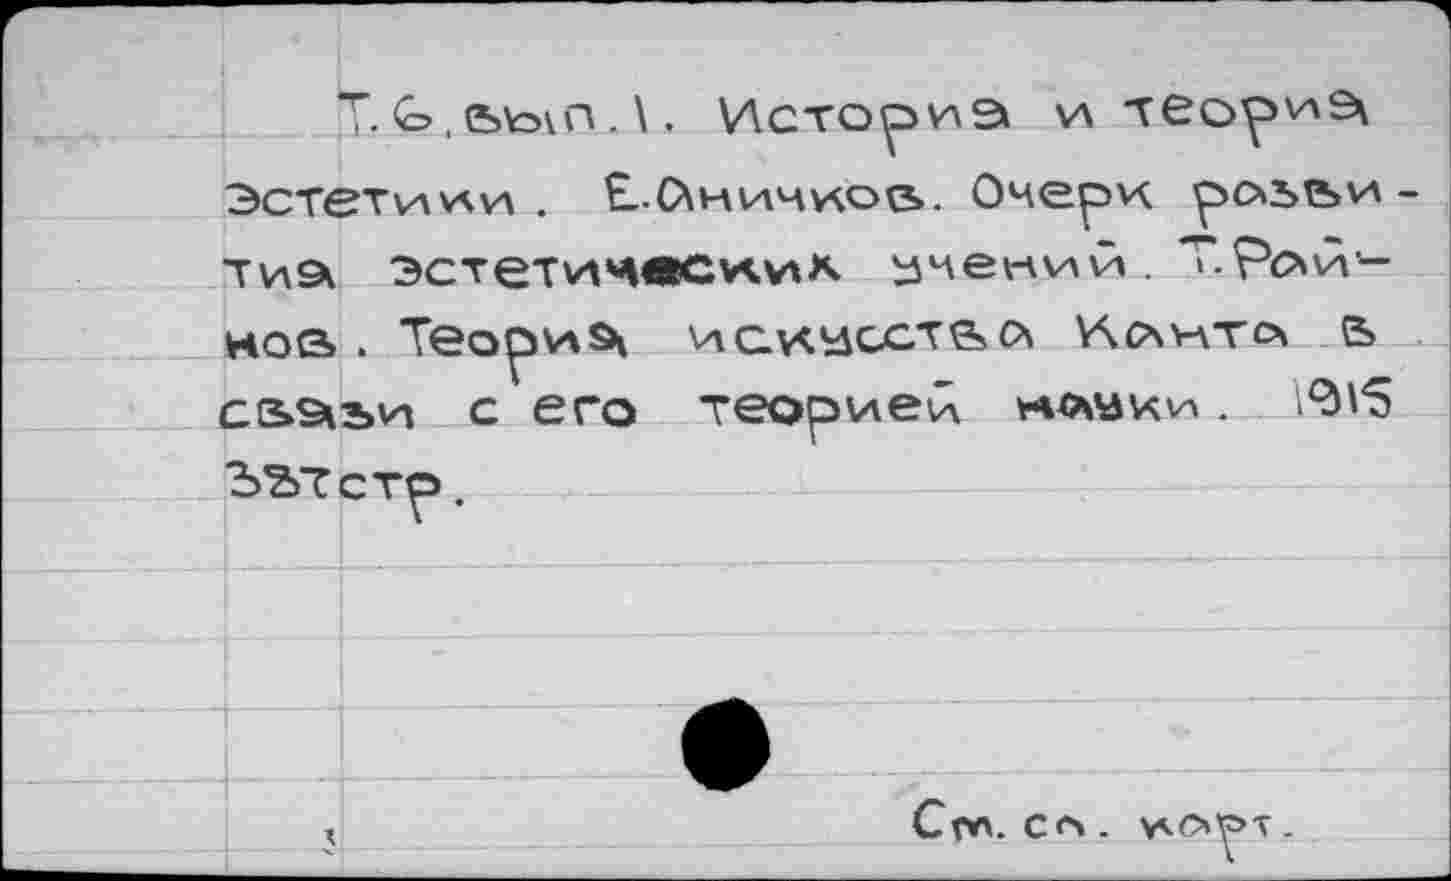 Т.6, вып.1. История и теория
эстетики. Е.Аничков. Очерк разви-
тия эстетических учений. Т.Рай-
нов. Теория искусства Канта в
связи с его теорией науки. 1915
337 стр.
См. сл. карт.